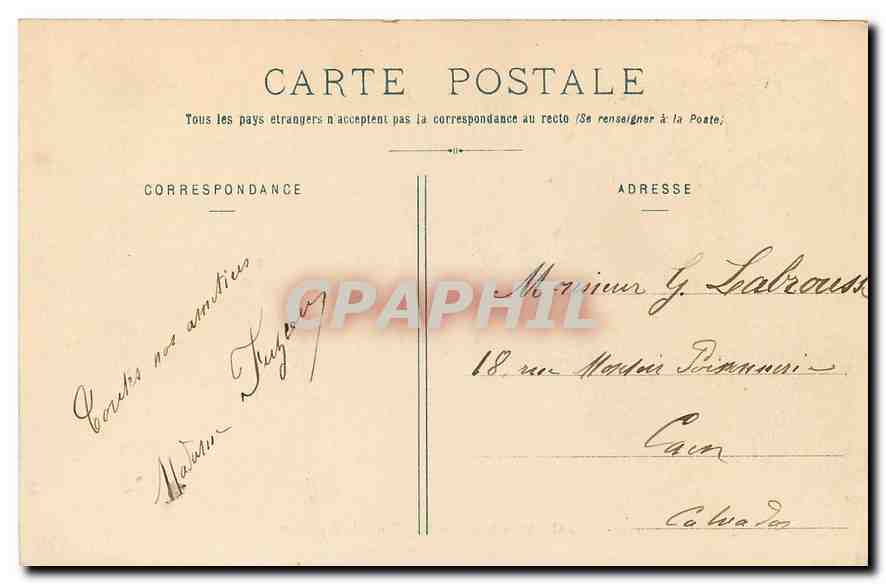 CARTE POSTALE
Tous les pays etrangers n'acceptent pas la correspondance au recto (Se renseigner à la Poste)
CORRESPONDANCE
ADRESSE
Toutes nos amitiés
Madame
Monsieur G. Labrousse
18, rue Montoir Poissonnerie
Caen
Calvados
CPAPHIL